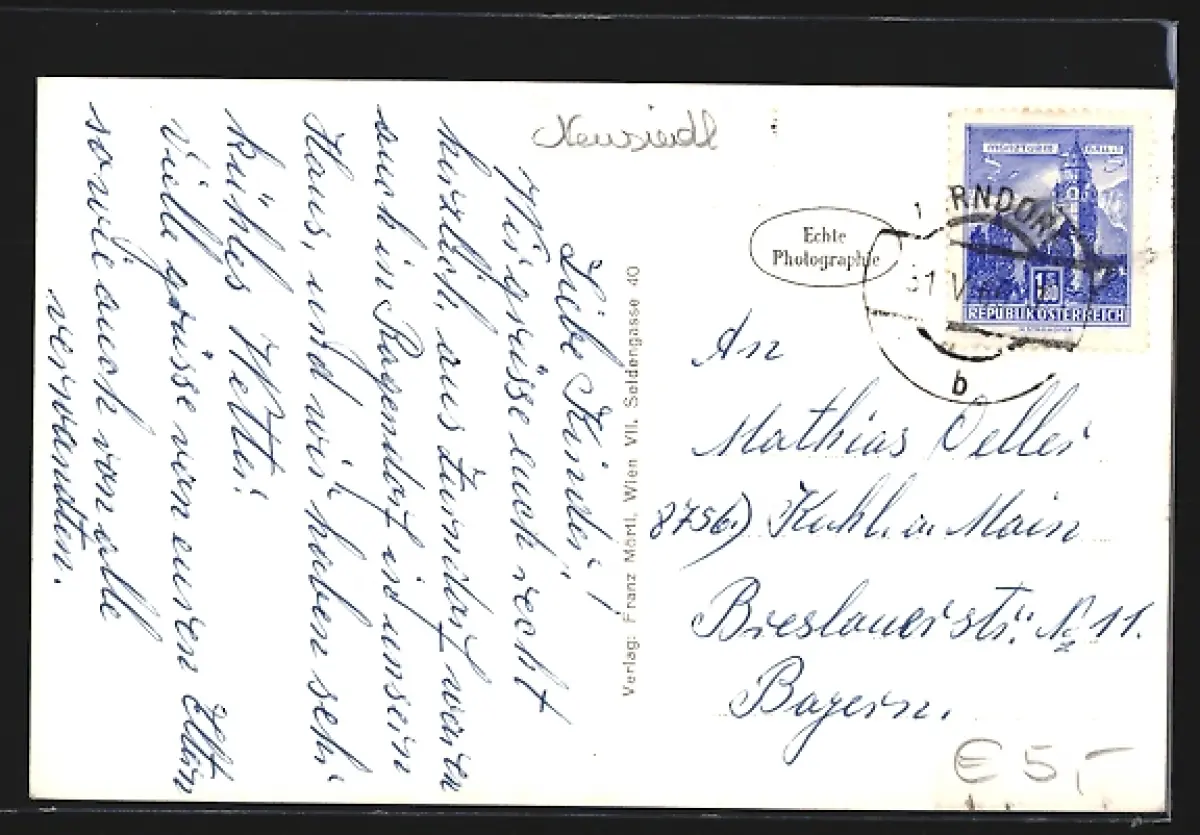 Neusiedl
Liebe Kinder!
Wir grüsse euch recht
herzlich, aus Zurndorf waren
auch in Ragendorf in unsern
Haus, und wir haben sehr
kühles Wetter.
viele grüsse von euren Eltern
sowie auch von alle
verwandten.
Verlag: Franz Mörtl, Wien VII, Seidengasse 40
Echte
Photographie
RNDORF
31 V
b
1.80
REPUBLIK ÖSTERREICH
An
Mathias Oeller
8756) Kahl. a Main
Breslauerstr. No 11.
Bayern.
€ 5,-